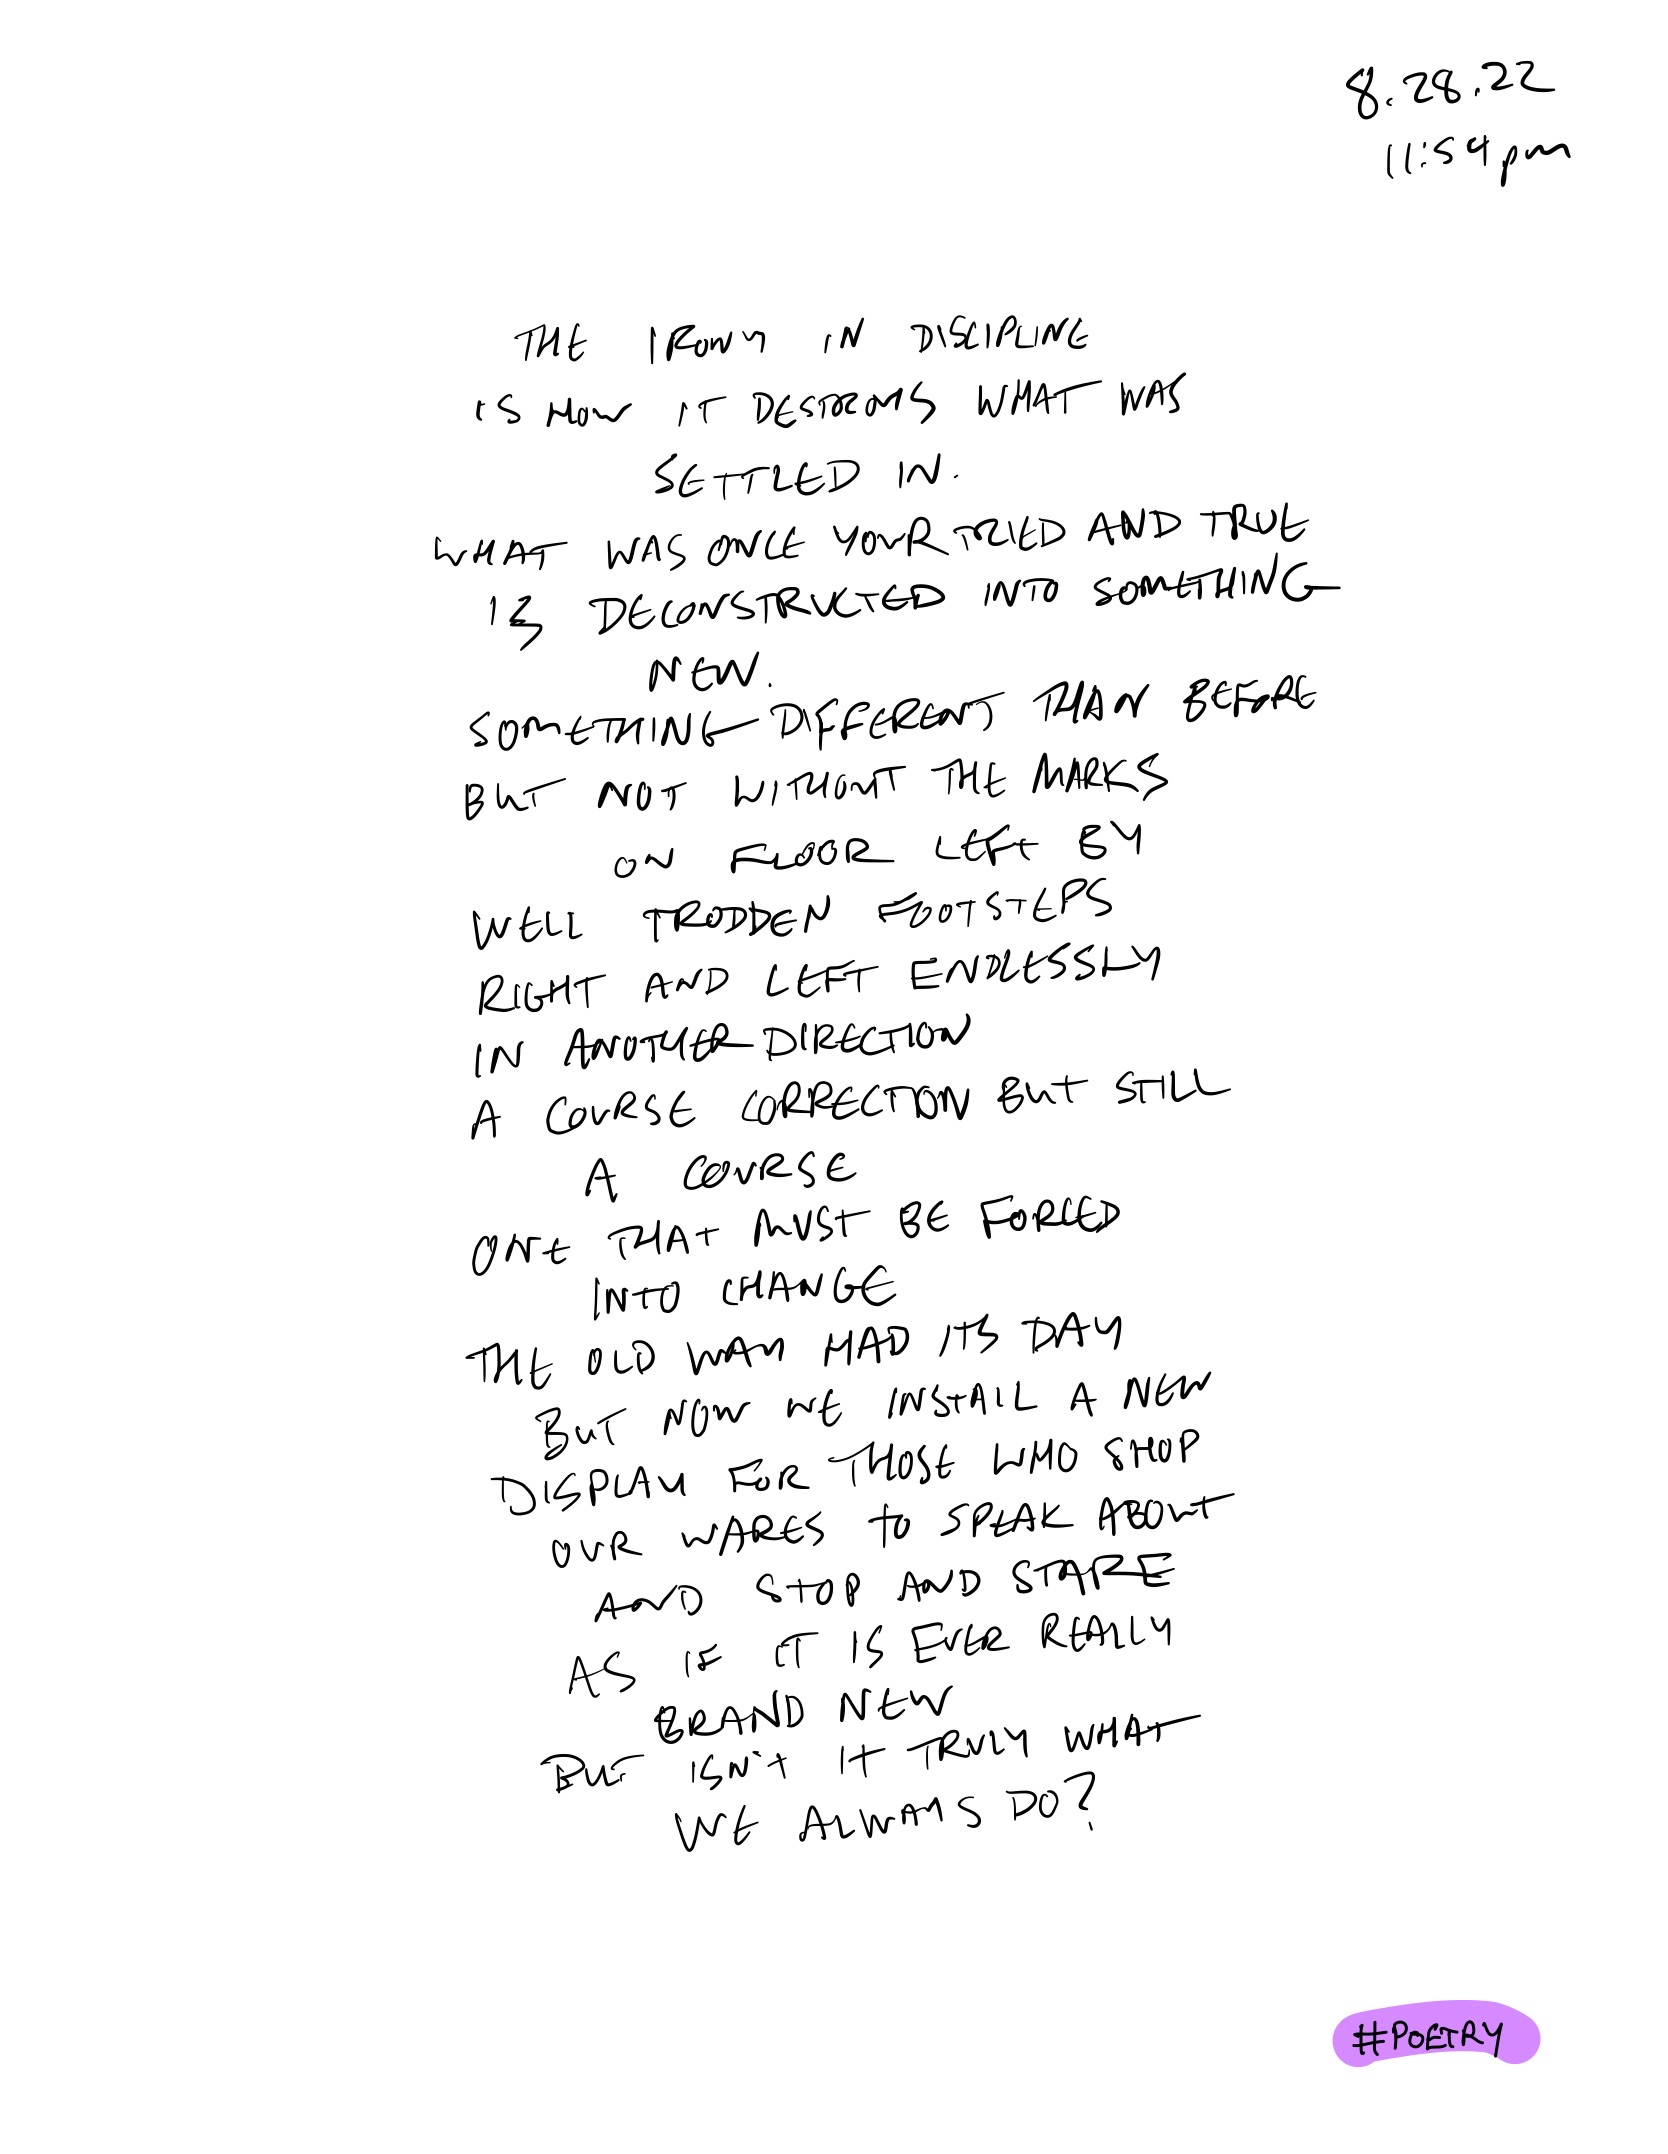 8.28.22
11:54pm
THE IRONY IN DISCIPLINE
IS HOW IT DESTROYS WHAT WAS
SETTLED IN.
WHAT WAS ONCE YOUR TRIED AND TRUE
IS DECONSTRUCTED INTO SOMETHING
NEW.
SOMETHING DIFFERENT THAN BEFORE
BUT NOT WITHOUT THE MARKS
ON FLOOR LEFT BY
WELL TRODDEN FOOTSTEPS
RIGHT AND LEFT ENDLESSLY
IN ANOTHER DIRECTION
A COURSE CORRECTION BUT STILL
A COURSE
ONE THAT MUST BE FORCED
INTO CHANGE
THE OLD WAY HAD ITS DAY
BUT NOW WE INSTALL A NEW
DISPLAY FOR THOSE WHO SHOP
OUR WARES TO SPEAK ABOUT
AND STOP AND STARE
AS IF IT IS EVER REALLY
BRAND NEW
BUT ISN'T IT TRULY WHAT
WE ALWAYS DO?
#POETRY